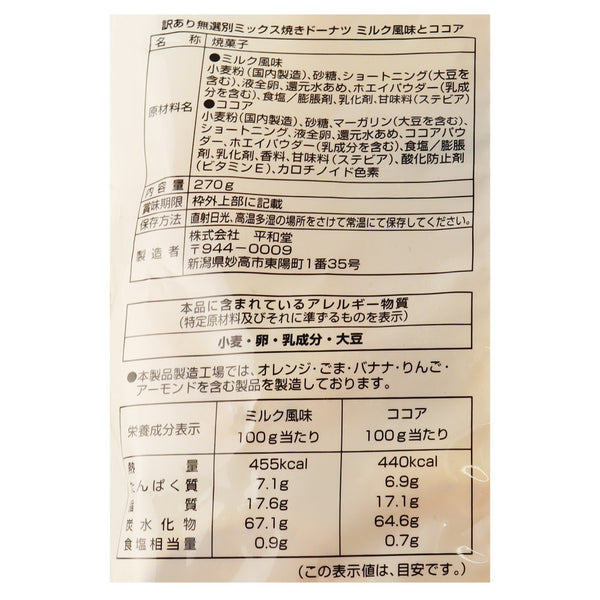 訳あり無選別ミックス焼きドーナツ ミルク風味とココア
名称 焼菓子
原材料名
●ミルク風味
小麦粉(国内製造)、砂糖、ショートニング(大豆を
含む)、液全卵、還元水あめ、ホエイパウダー(乳成
分を含む)、食塩/膨脹剤、乳化剤、甘味料(ステビア)
●ココア
小麦粉(国内製造)、砂糖、マーガリン(大豆を含む)、
ショートニング、液全卵、還元水あめ、ココアパウ
ダー、ホエイパウダー(乳成分を含む)、食塩/膨脹
剤、乳化剤、香料、甘味料(ステビア)、酸化防止剤
(ビタミンE)、カロチノイド色素
内容量 270g
賞味期限 枠外上部に記載
保存方法 直射日光、高温多湿の場所をさけて常温にて保存してください。
製造者
株式会社 平和堂
〒944-0009
新潟県妙高市東陽町1番35号
本品に含まれているアレルギー物質
(特定原材料及びそれに準ずるものを表示)
小麦・卵・乳成分・大豆
●本製品製造工場では、オレンジ・ごま・バナナ・りんご・
アーモンドを含む製品を製造しております。
栄養成分表示 ミルク風味 100g当たり ココア 100g当たり
熱量 455kcal 440kcal
たんぱく質 7.1g 6.9g
脂質 17.6g 17.1g
炭水化物 67.1g 64.6g
食塩相当量 0.9g 0.7g
(この表示値は、目安です。)